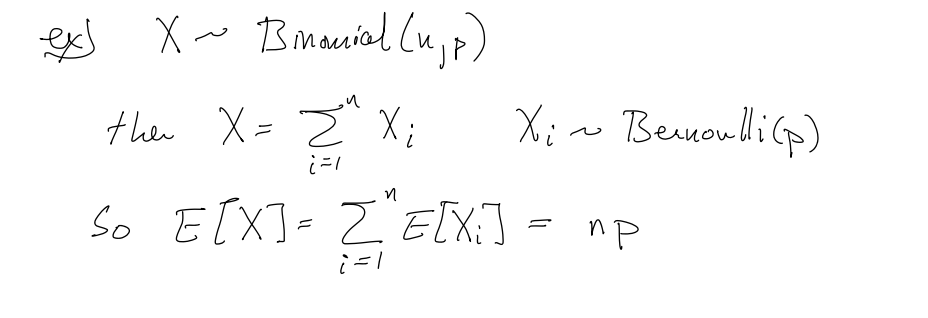 ex) X ~ Binomial(n,p)
then X = ∑_{i=1}^{n} X_i    X_i ~ Bernoulli(p)
So E[X] = ∑_{i=1}^{n} E[X_i] = np